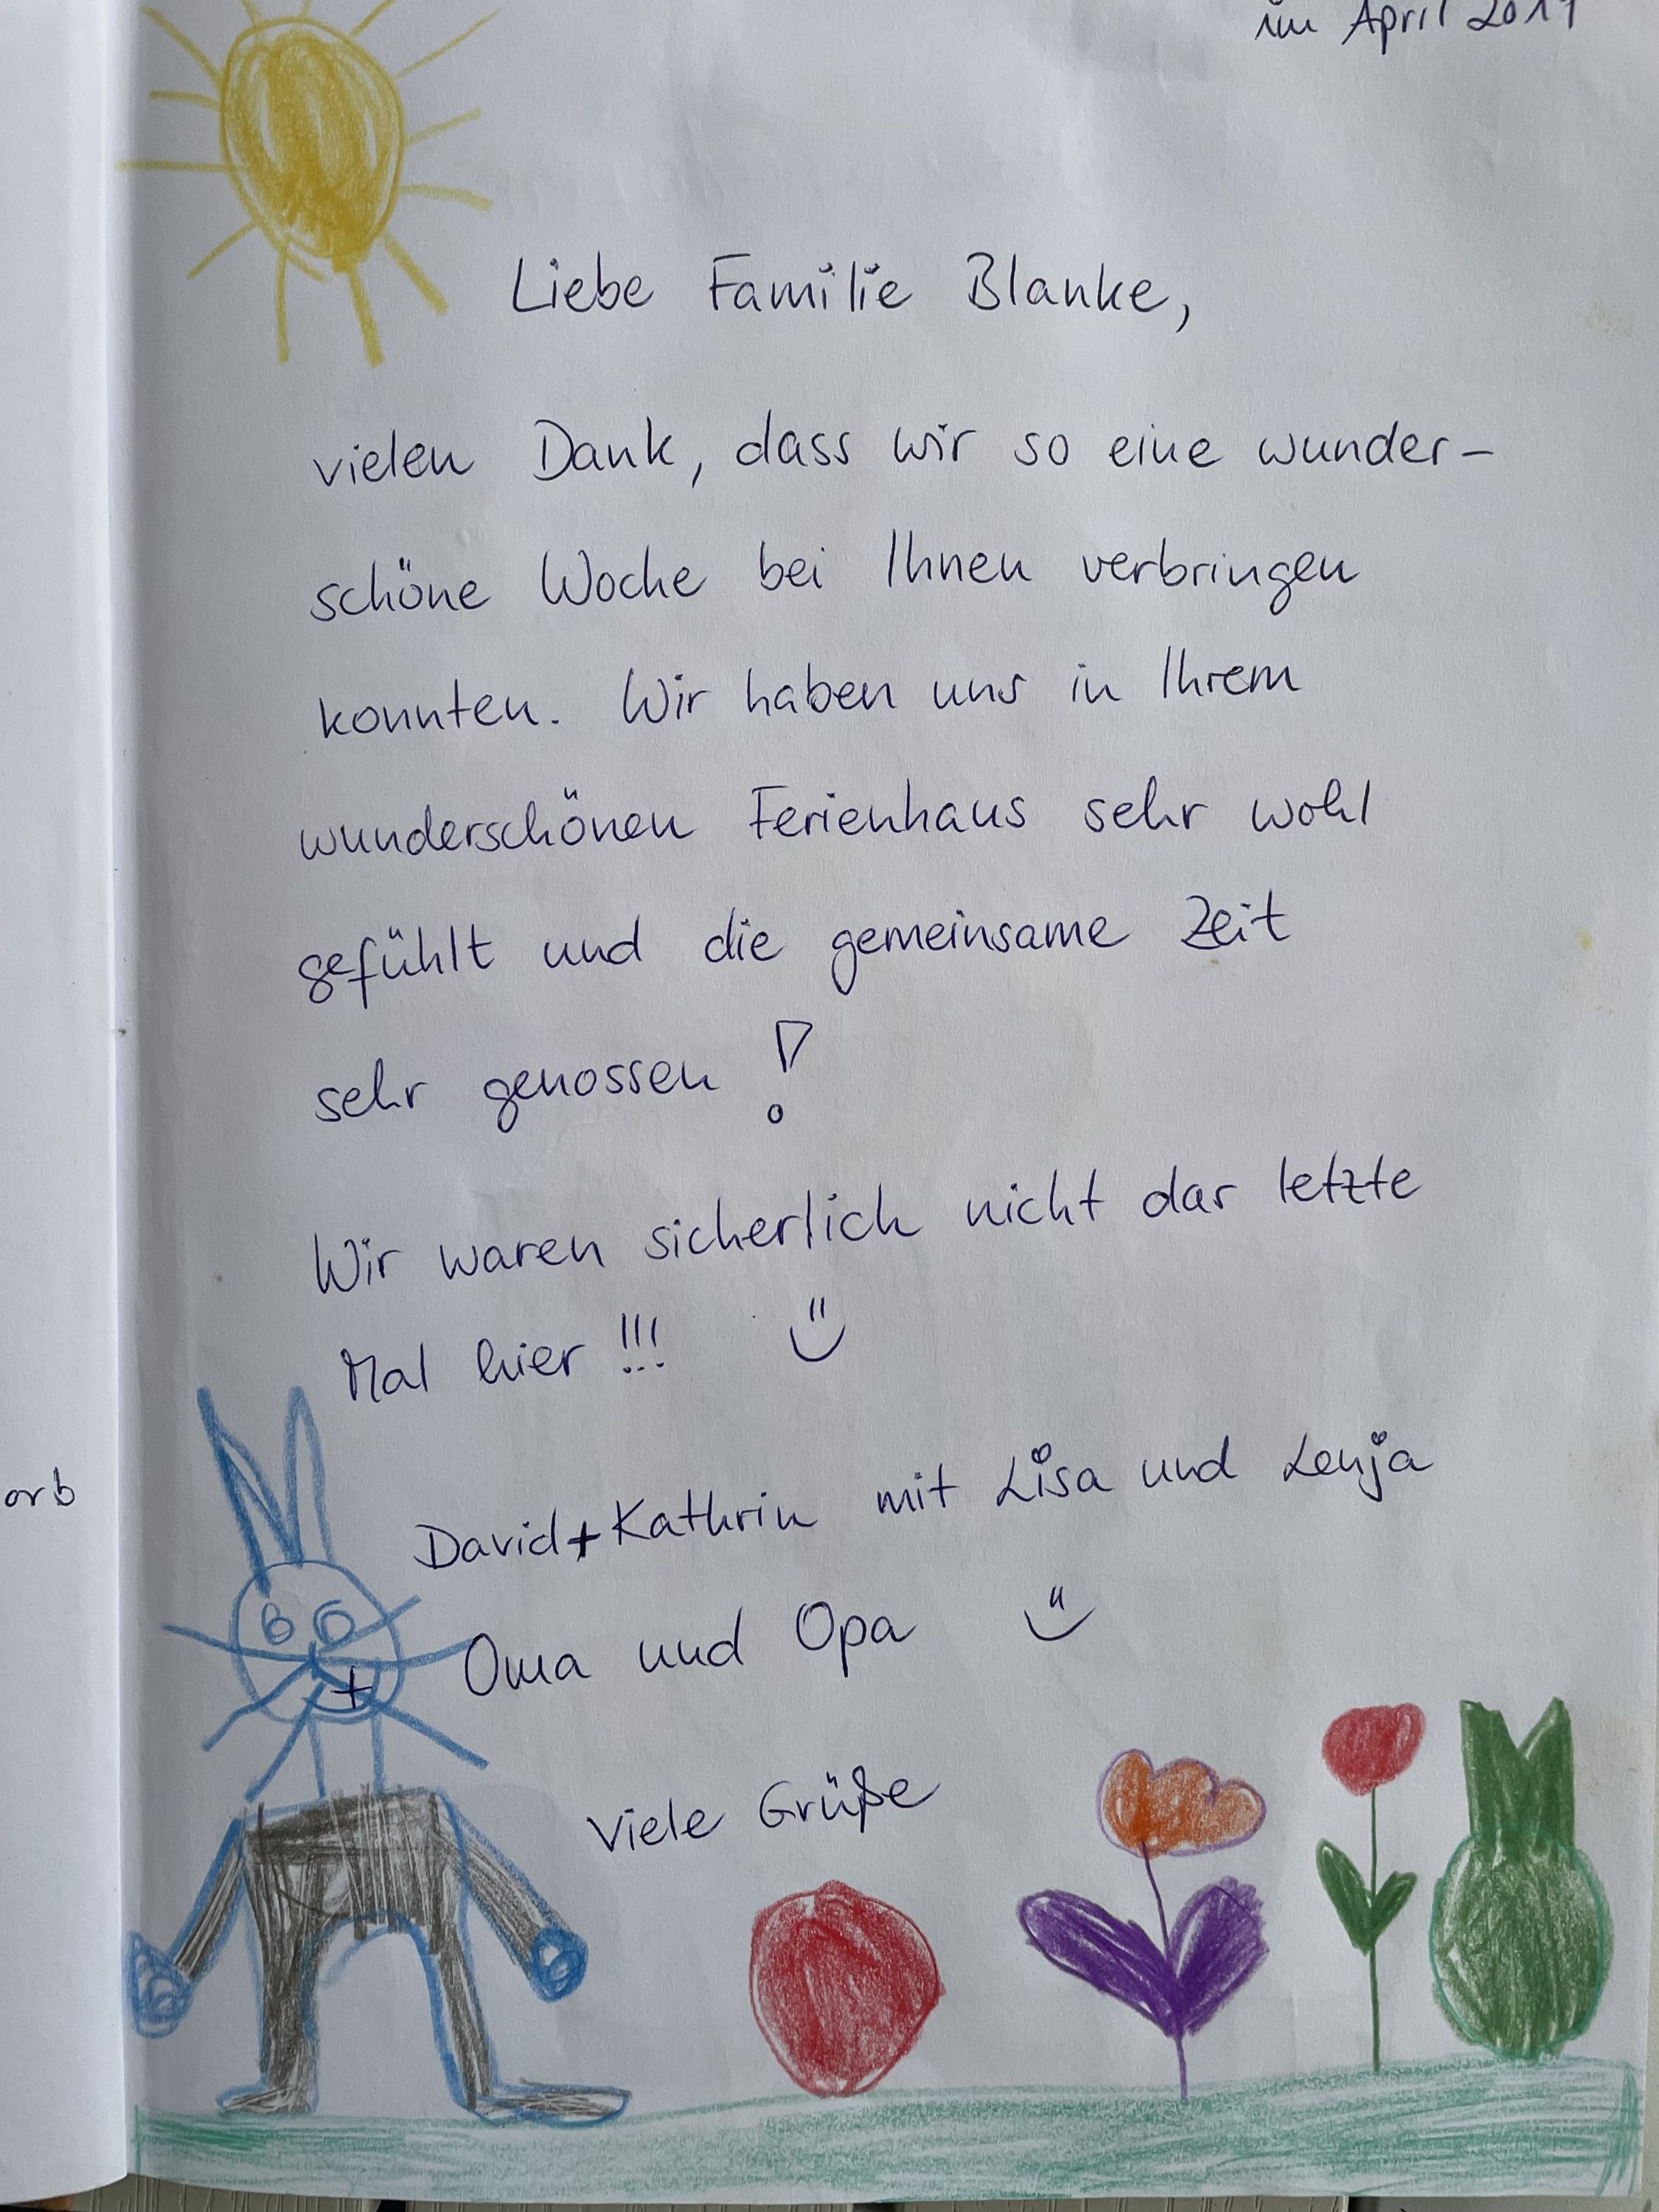 im April
Liebe Familie Blanke,
vielen Dank, dass wir so eine wunder-
schöne Woche bei Ihnen verbringen
konnten. Wir haben uns in Ihrem
wunderschönen Ferienhaus sehr wohl
gefühlt und die gemeinsame Zeit
sehr genossen !
Wir waren sicherlich nicht das letzte
Mal hier !!!
David + Kathrin mit Lisa und Lenja
+ Oma und Opa
Viele Grüße
orb